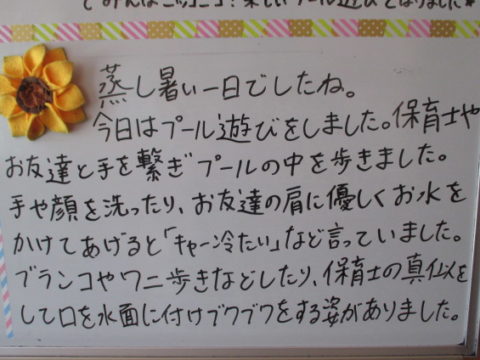 でみんなニッコニコ！楽しいプール遊びとなりました
蒸し暑い一日でしたね。
今日はプール遊びをしました。保育士や
お友達と手を繋ぎプールの中を歩きました。
手や顔を洗ったり、お友達の肩に優しくお水を
かけてあげると「キャー冷たい」など言っていました。
ブランコやワニ歩きなどしたり、保育士の真似を
して口を水面に付けブクブクをする姿がありました。